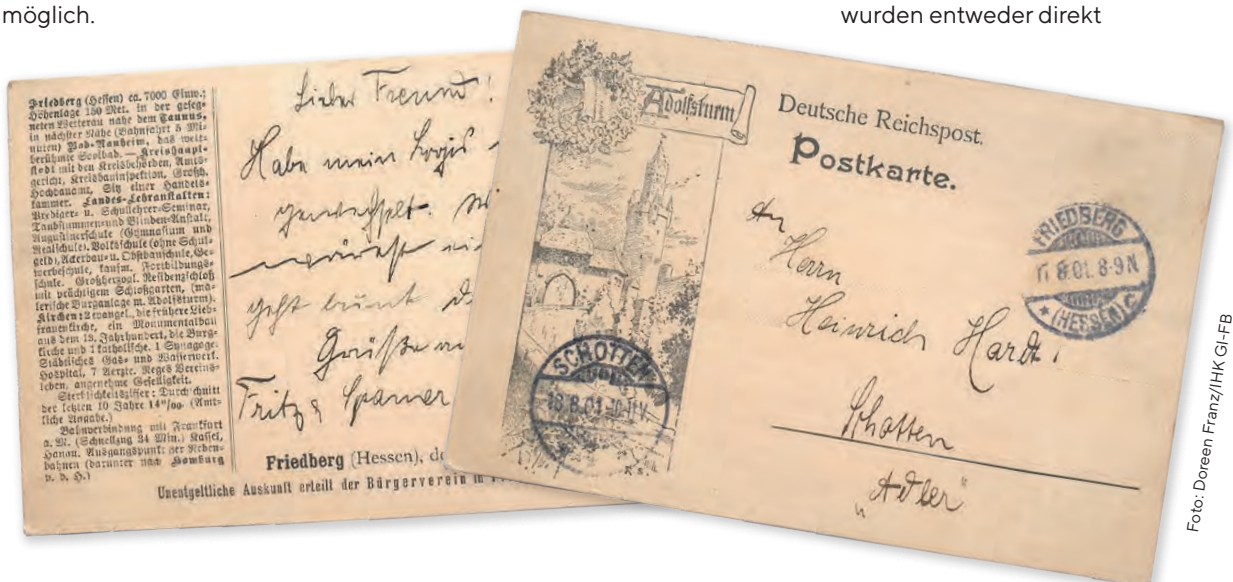 möglich.
wurden entweder direkt
Friedberg (Hessen) ca. 7000 Einw.;
Höhenlage 150 Met. in der geseg-
neten Wetterau nahe dem Taunus,
in nächster Nähe (Bahnfahrt 5 Mi-
nuten) Bad-Nauheim, das welt-
berühmte Soolbad. — Kreishaupt-
stadt mit den Kreisbehörden, Amts-
gericht, Kreisbauinspektion, Großh.
Hochbauamt, Sitz einer Handels-
kammer. Landes-Lehranstalten:
Prediger- u. Schullehrer-Seminar,
Taubstummen- und Blinden-Anstalt,
Augustinerschule (Gymnasium und
Realschule). Volksschule (ohne Schul-
geld), Ackerbau- u. Obstbauschule, Ge-
werbeschule, kaufm. Fortbildungs-
schule. Großherzogl. Residenzschloß
mit prächtigem Schloßgarten, (ma-
lerische Burganlage m. Adolfsturm).
Kirchen: Evangel., die frühere Lieb-
frauenkirche, ein Monumentalbau
aus dem 13. Jahrhundert, die Burg-
kirche und 1 katholische. 1 Synagoge.
Städtisches Gas- und Wasserwerk.
Hospital, 7 Aerzte. Reges Vereins-
leben, angenehme Geselligkeit.
Sterblichkeitsziffer: Durchschnitt
der letzten 10 Jahre 14°/₀₀. (Amt-
liche Angabe.)
Bahnverbindung mit Frankfurt
a. M. (Schnellzug 34 Min.) Kassel,
Hanau. Ausgangspunkt der Neben-
bahnen (darunter nach Homburg
v. d. H.)
Lieber Freund!
Habe mein Logis
gewechselt.
geht bunt
Grüße
Fritz Spamer
Friedberg (Hessen), de
Unentgeltliche Auskunft erteilt der Bürgerverein in
Adolfsturm
Deutsche Reichspost.
Postkarte.
FRIEDBERG
8.01.8-9N
* (HESSEN) C
SCHOTTEN
18.8.01.10-11V.
An
Herrn
Heinrich Hardt!
Schotten
„Adler"
Foto: Doreen Franz/IHK GI-FB